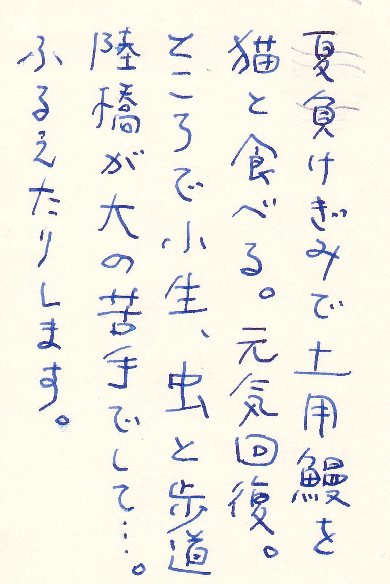 夏負けぎみで土用鰻を
猫と食べる。元気回復。
ところで小生、虫と歩道
陸橋が大の苦手でして…。
ふるえたりします。